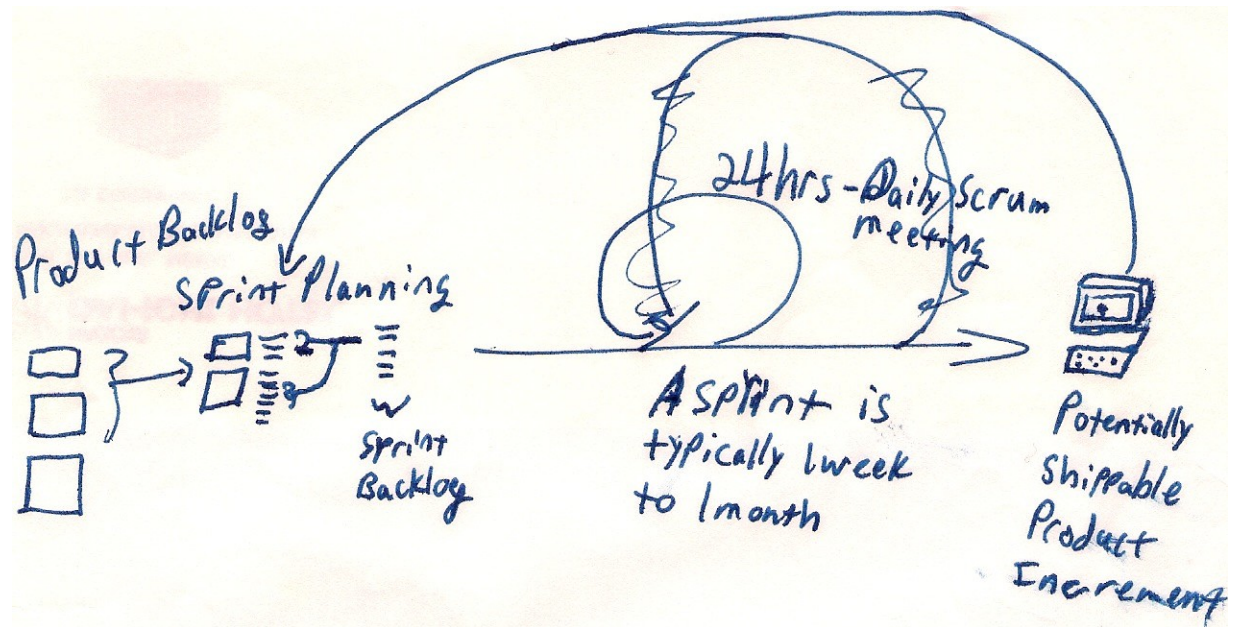 Product Backlog
Sprint Planning
Sprint
Backlog
24hrs - Daily Scrum
meeting
A sprint is
typically 1 week
to 1 month
Potentially
Shippable
Product
Increment